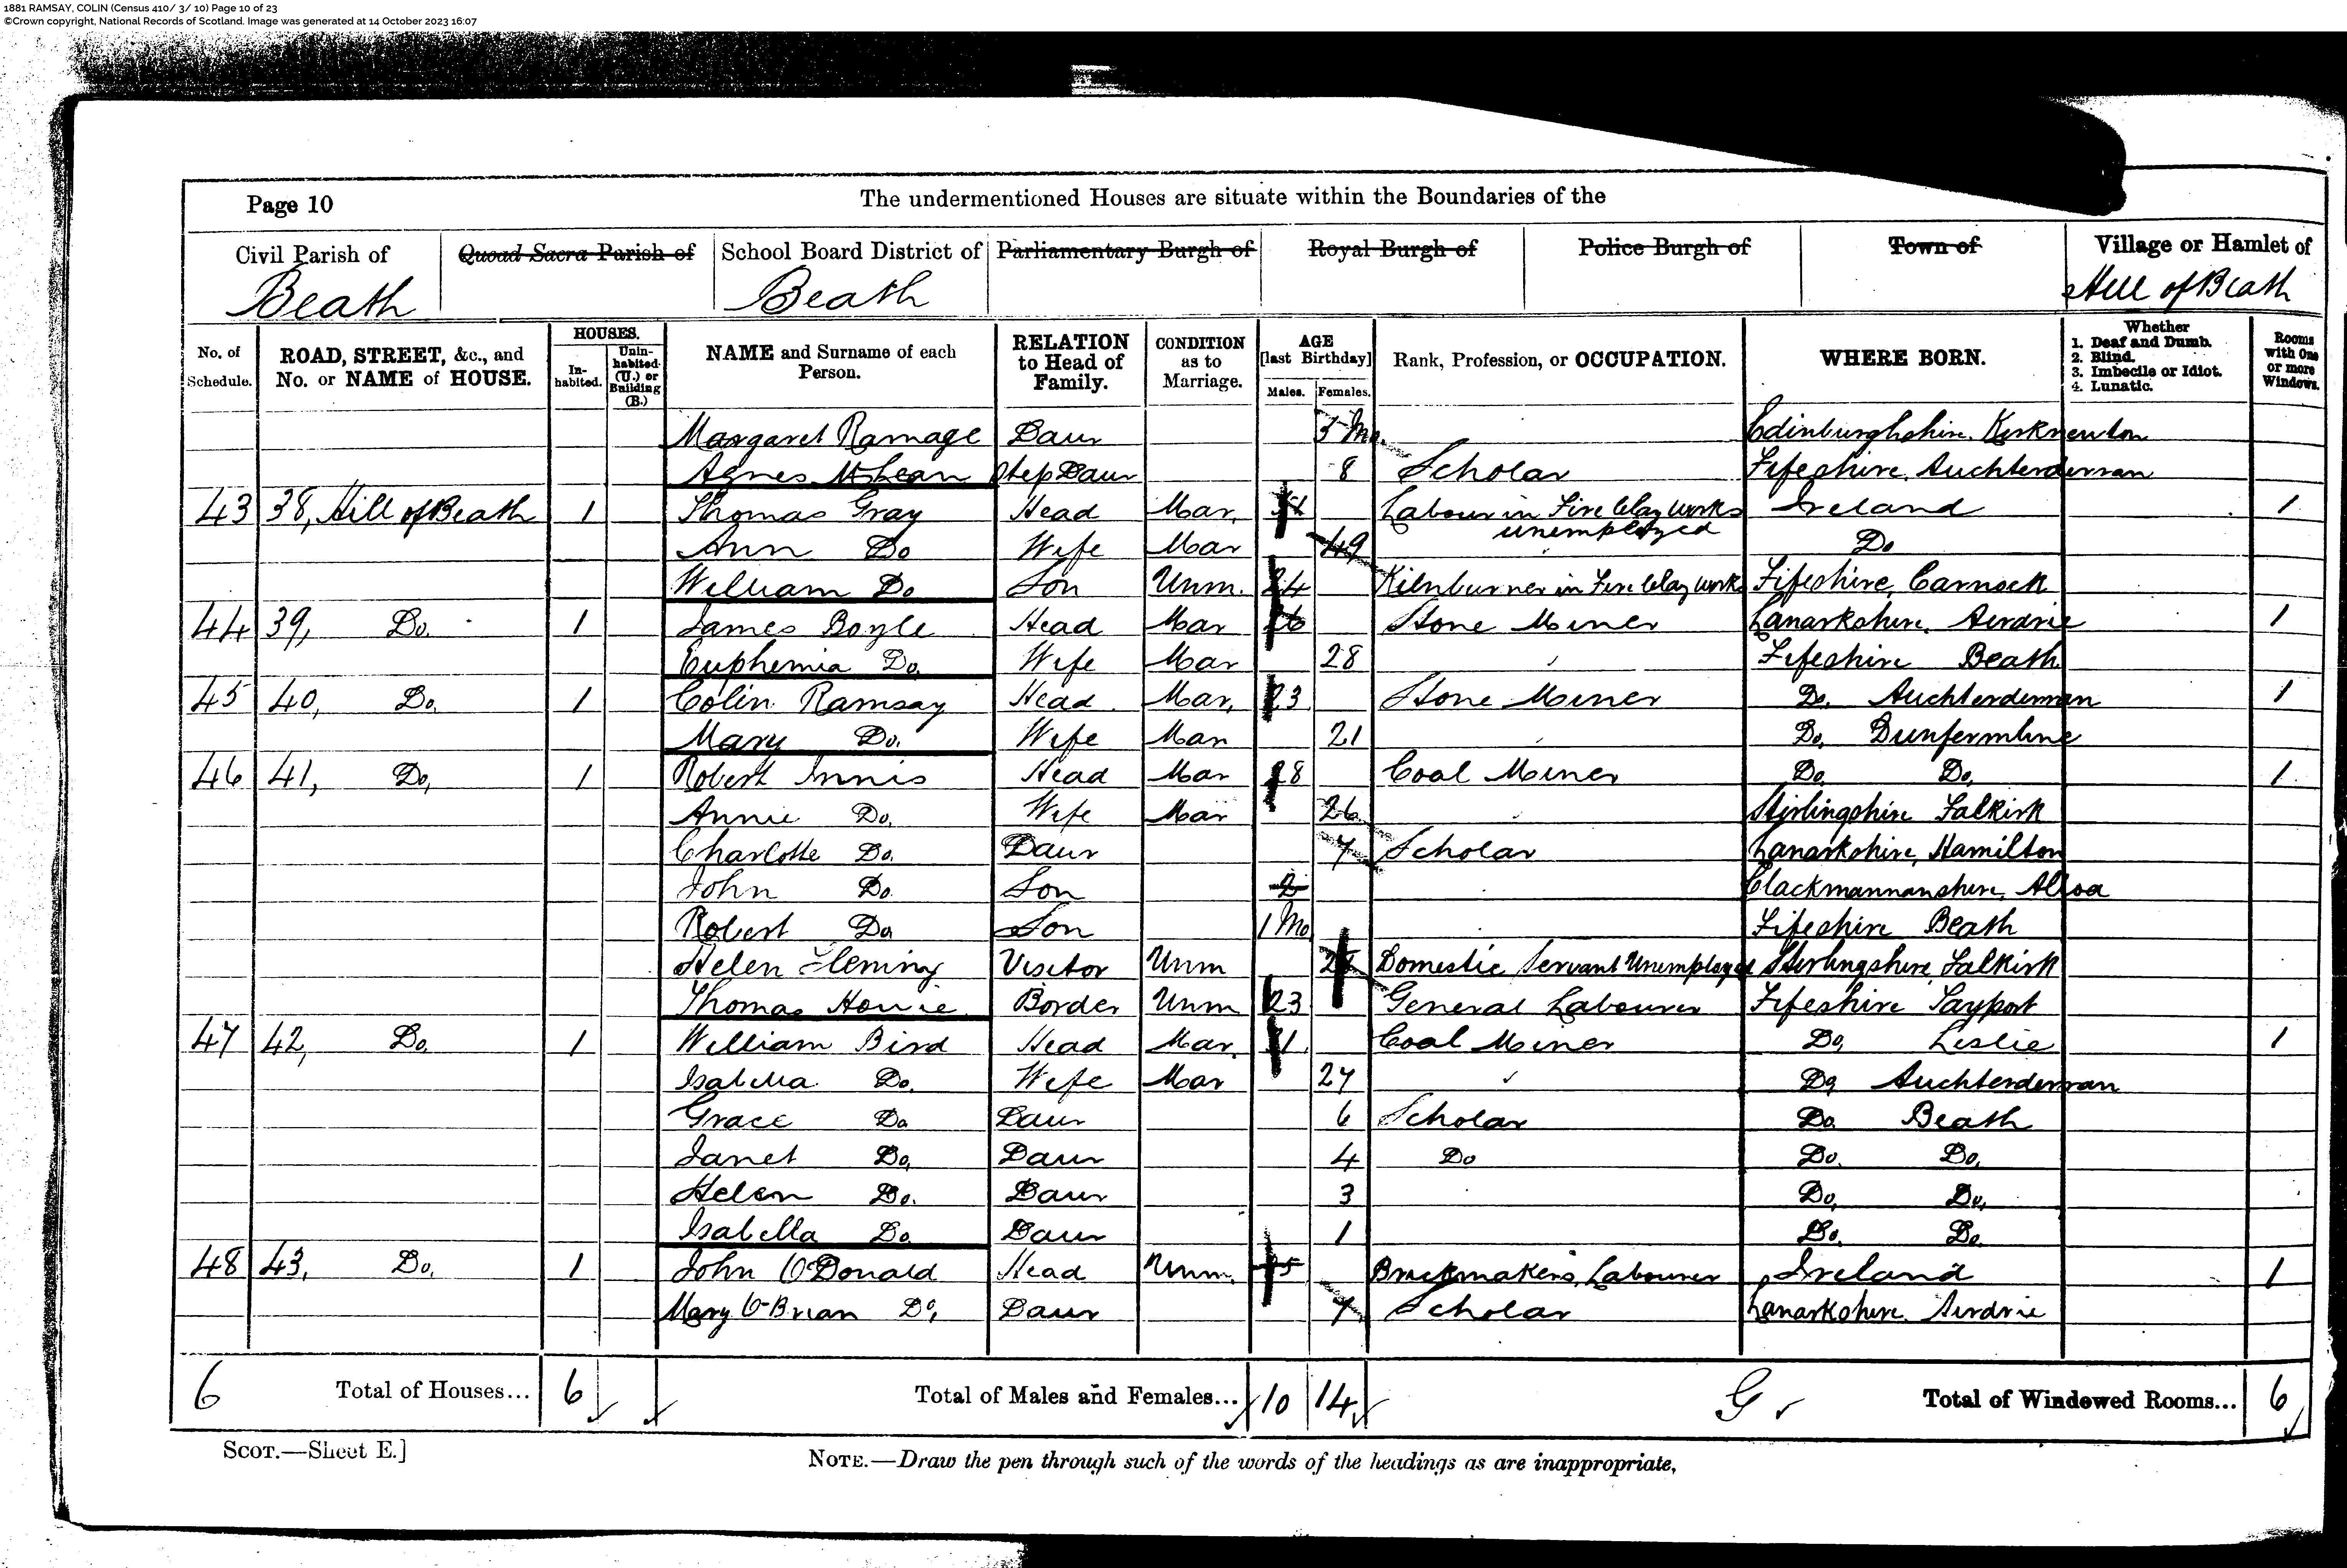 1881 RAMSAY, COLIN (Census 410/ 3/ 10) Page 10 of 23
©Crown copyright, National Records of Scotland. Image was generated at 14 October 2023 16:07
Page 10 The undermentioned Houses are situate within the Boundaries of the
Civil Parish of Quoad Sacra Parish of School Board District of Parliamentary Burgh of Royal Burgh of Police Burgh of Town of Village or Hamlet of
Beath Beath Hill of Beath
No. of Schedule. ROAD, STREET, &c., and No. or NAME of HOUSE. HOUSES. In-habited. Unin-habited (U.) or Building (B.) NAME and Surname of each Person. RELATION to Head of Family. CONDITION as to Marriage. AGE [last Birthday] Males. Females. Rank, Profession, or OCCUPATION. WHERE BORN. Whether 1. Deaf and Dumb. 2. Blind. 3. Imbecile or Idiot. 4. Lunatic. Rooms with One or more Windows.
Margaret Ramage Daur 5 Mo. Edinburghshire. Kirknewton
Agnes McLean StepDaur 8 Scholar Fifeshire. Auchterderran
43 38, Hill of Beath 1 Thomas Gray Head Mar. Labour in Fire Clay works Ireland 1
unemployed
Ann Do Wife Mar 49 Do
William Do Son Unm. 24 Kilnburner in Fire Clay works Fifeshire, Carnock
44 39, Do. 1 James Boyle Head Mar 26 Stone Miner Lanarkshire. Airdrie 1
Euphemia Do. Wife Mar 28 Fifeshire Beath
45 40, Do. 1 Colin Ramsay Head Mar. 23 Stone Miner Do. Auchterderran 1
Mary Do. Wife Mar 21 Do. Dunfermline
46 41, Do, 1 Robert Innis Head Mar 28 Coal Miner Do. Do, 1
Annie Do. Wife Mar 26 Stirlingshire Falkirk
Charlotte Do. Daur 7 Scholar Lanarkshire, Hamilton
John Do. Son 2 Clackmannanshire, Alloa
Robert Do Son 1 Mo Fifeshire Beath
Helen Fleming Visitor Unm Domestic Servant Unemployed Stirlingshire, Falkirk
Thomas Howie Border Unm 23 General Labourer Fifeshire Tayport
47 42, Do. 1 William Bird Head Mar. 31 Coal Miner Do, Leslie 1
Isabella Do. Wife Mar 27 Do, Auchterderran
Grace Do Daur 6 Scholar Do. Beath
Janet Do, Daur 4 Do Do. Do.
Helen Do. Daur 3 Do, Do,
Isabella Do Daur 1 Do. Do.
48 43, Do. 1 John O'Donald Head Unm. Brickmakers, Labourer Ireland 1
Mary O'Brian Do, Daur 7 Scholar Lanarkshire. Airdrie
6 Total of Houses... 6 Total of Males and Females... 10 14 G Total of Windowed Rooms... 6
SCOT.—Sheet E.] NOTE.—Draw the pen through such of the words of the headings as are inappropriate,